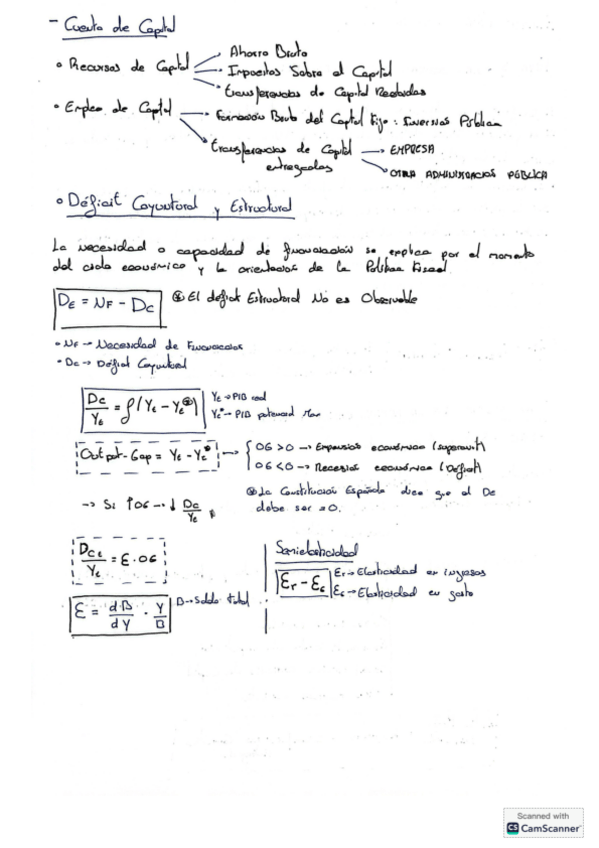 - Cuenta de Capital
• Recursos de Capital → Ahorro Bruto
→ Impuestos Sobre el Capital
→ transferencias de Capital Recibidas
• Empleo de Capital → Formación Bruta del Capital Fijo: Inversión Pública
→ transferencias de Capital entregadas → EMPRESA
→ OTRA ADMINISTRACIÓN PÚBLICA
• Déficit Coyuntural y Estructural
La necesidad o capacidad de financiación se explica por el momento
del ciclo económico y la orientación de la Política Fiscal
DE = NF - DC ⊛ El déficit Estructural No es Observable
• NF → Necesidad de Financiación
• Dc → Déficit Coyuntural
Dc/Yt = f(Yt - Yt*) Yt → PIB real
Yt* → PIB potencial
Output-Gap = Yt - Yt* → OG > 0 → Expansión económica (superavit)
OG < 0 → Recesión económica (Déficit)
→ Si ↑OG → ↓ Dc/Yt
⊛ La Constitución Española dice que el De
debe ser = 0.
Dct/Yt = Ɛ · OG
Ɛ = dB/dY · Y/B B → Saldo total
Semielasticidad
Ɛr - Ɛg Ɛr → Elasticidad en ingresos
Ɛg → Elasticidad en gasto
Scanned with
CS CamScanner